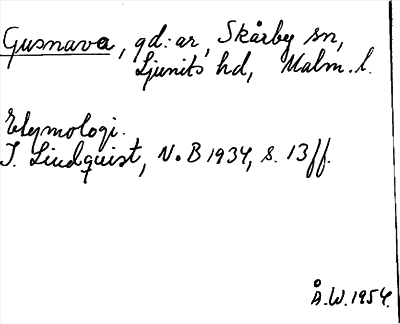 Gusnava, gd:ar, Skårby sn,
Ljunits hd, Malm. l.
Etymologi.
I. Lindquist, N.B 1934, s. 13 ff.
Å.W. 1954.